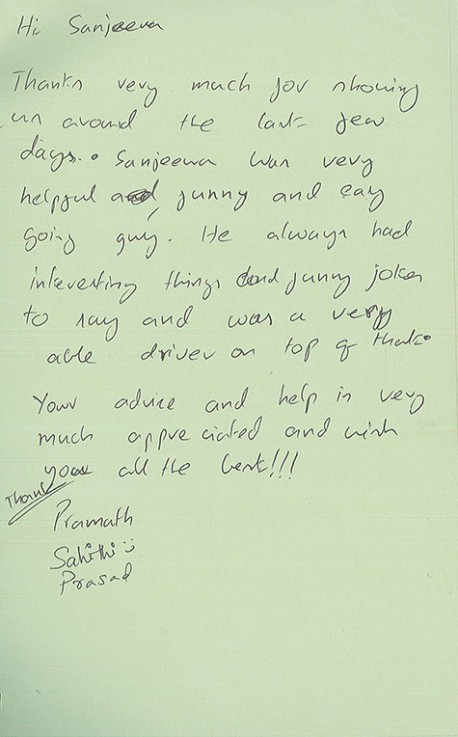 Hi Sanjeewa
Thanks very much for showing
us around the last few
days. Sanjeewa was very
helpful, funny and easy
going guy. He always had
interesting things and funny jokes
to say and was a very
able driver on top of that.
Your advice and help is very
much appreciated and wish
you all the best!!!
Thanks
Pramath
Sahithi :)
Prasad